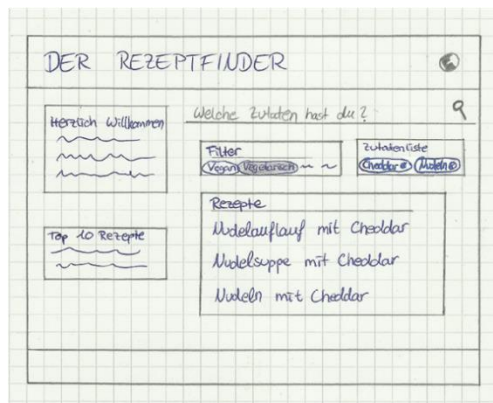 DER REZEPTFINDER
Herzlich Willkommen
Top 10 Rezepte
Welche Zutaten hast du?
Filter
Vegan Vegetarisch
Zutatenliste
Cheddar Nudeln
Rezepte
Nudelauflauf mit Cheddar
Nudelsuppe mit Cheddar
Nudeln mit Cheddar